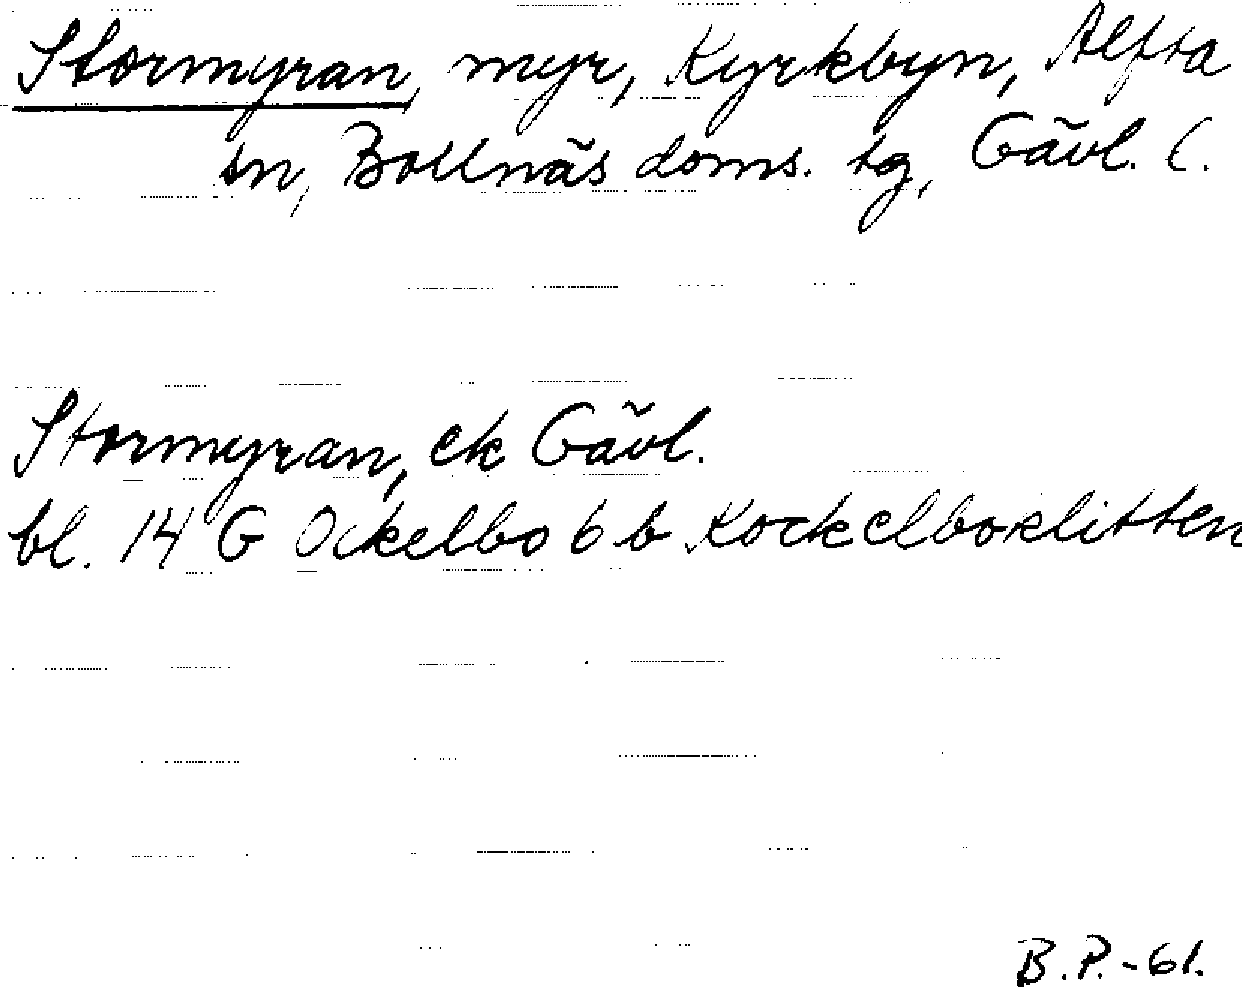 Stormyran, myr, Kyrkbyn, Alfta
sn, Bollnäs doms. tg, Gävl. l.
Stormyran, ek Gävl.
bl. 14 G Ockelbo 6 b Kockelboklitten
B.P.-61.